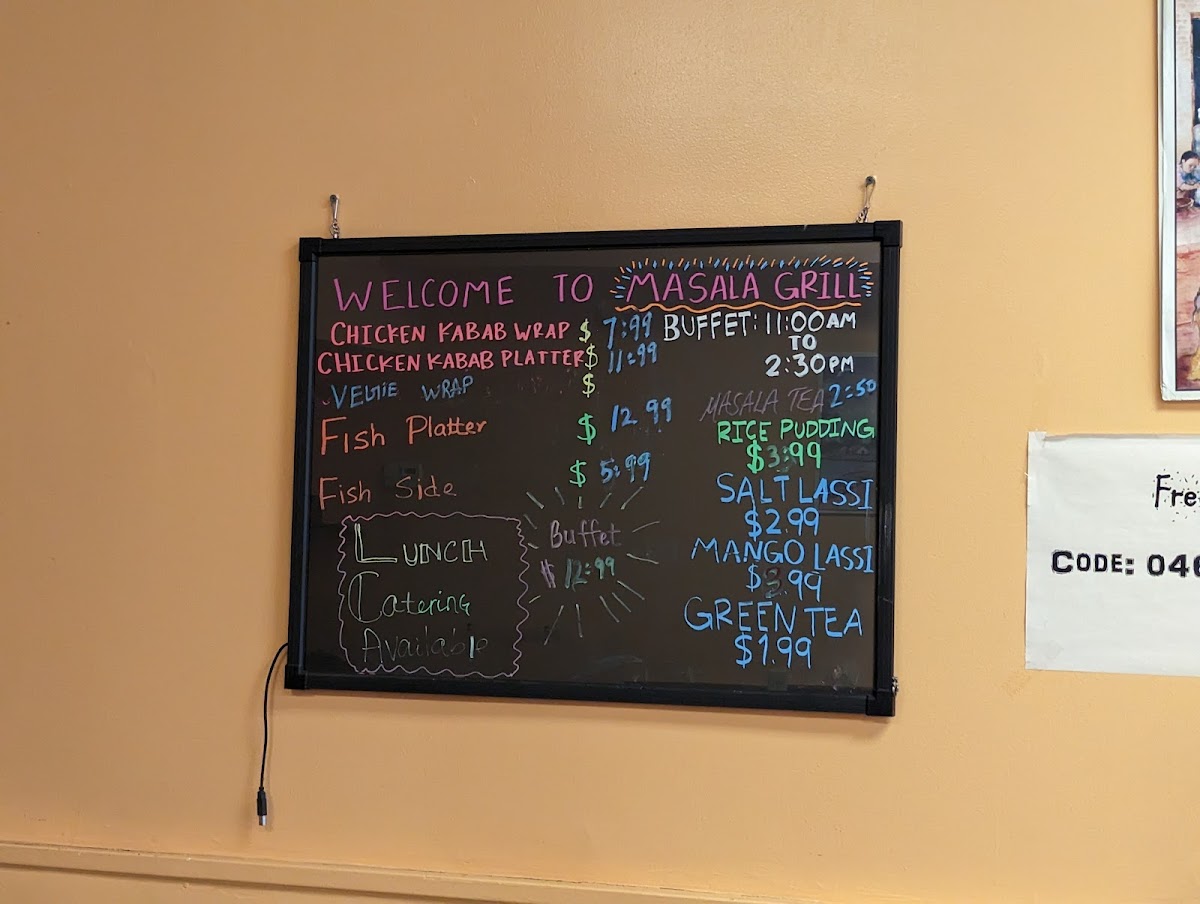 WELCOME TO MASALA GRILL
CHICKEN KABAB WRAP $ 7:99
CHICKEN KABAB PLATTER $ 11:99
VEGIE WRAP $
Fish Platter $ 12.99
Fish Side $ 5:99
LUNCH
Catering
Available
Buffet
$ 12:99
BUFFET: 11:00AM
TO
2:30PM
MASALA TEA 2:50
RICE PUDDING
$3:99
SALT LASSI
$2.99
MANGO LASSI
$3.99
GREEN TEA
$1.99
CODE: